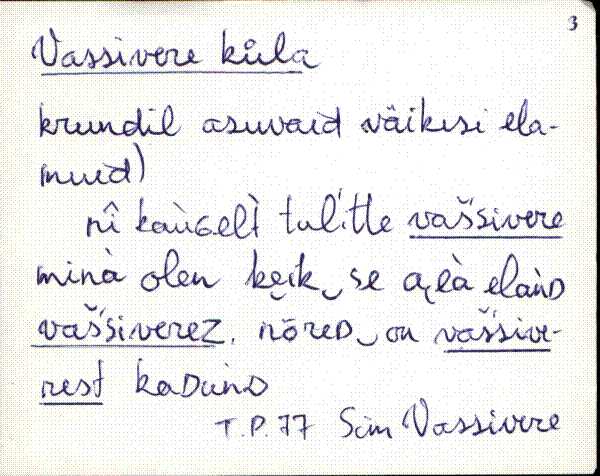 3
Vassivere küla
krundil asuvaid väikesi ela-
muid)
nî kaùGelt̀ tuĺitte vaš́šivere
minà olen kẹik‿se aᶅeà elànD
vaš́šiverez. nōreD‿on vaš́šive-
rest kaDunD
T.P. 77 Sim Vassivere